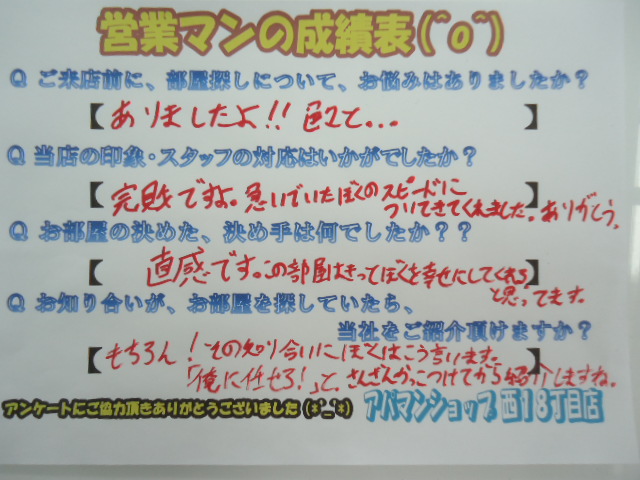 営業マンの成績表(^o^)
Q ご来店前に、部屋探しについて、お悩みはありましたか？
【ありましたよ!! 色々と...】
Q 当店の印象・スタッフの対応はいかがでしたか？
【完敗ですよ。急いでいたぼくのスピードに
ついてきてくれました。ありがとう。】
Q お部屋の決めた、決め手は何でしたか？？
【直感です。この部屋はきってぼくを幸せにしてくれる】
と思ってます。
Q お知り合いが、お部屋を探していたら、
当社をご紹介頂けますか？
【もちろん！その知り合いにぼくはこう言います。
「俺に任せろ！」と。さんざんかっこつけてから紹介しますね。】
アンケートにご協力頂きありがとうございました(*'_'*)
アパマンショップ 西18丁目店